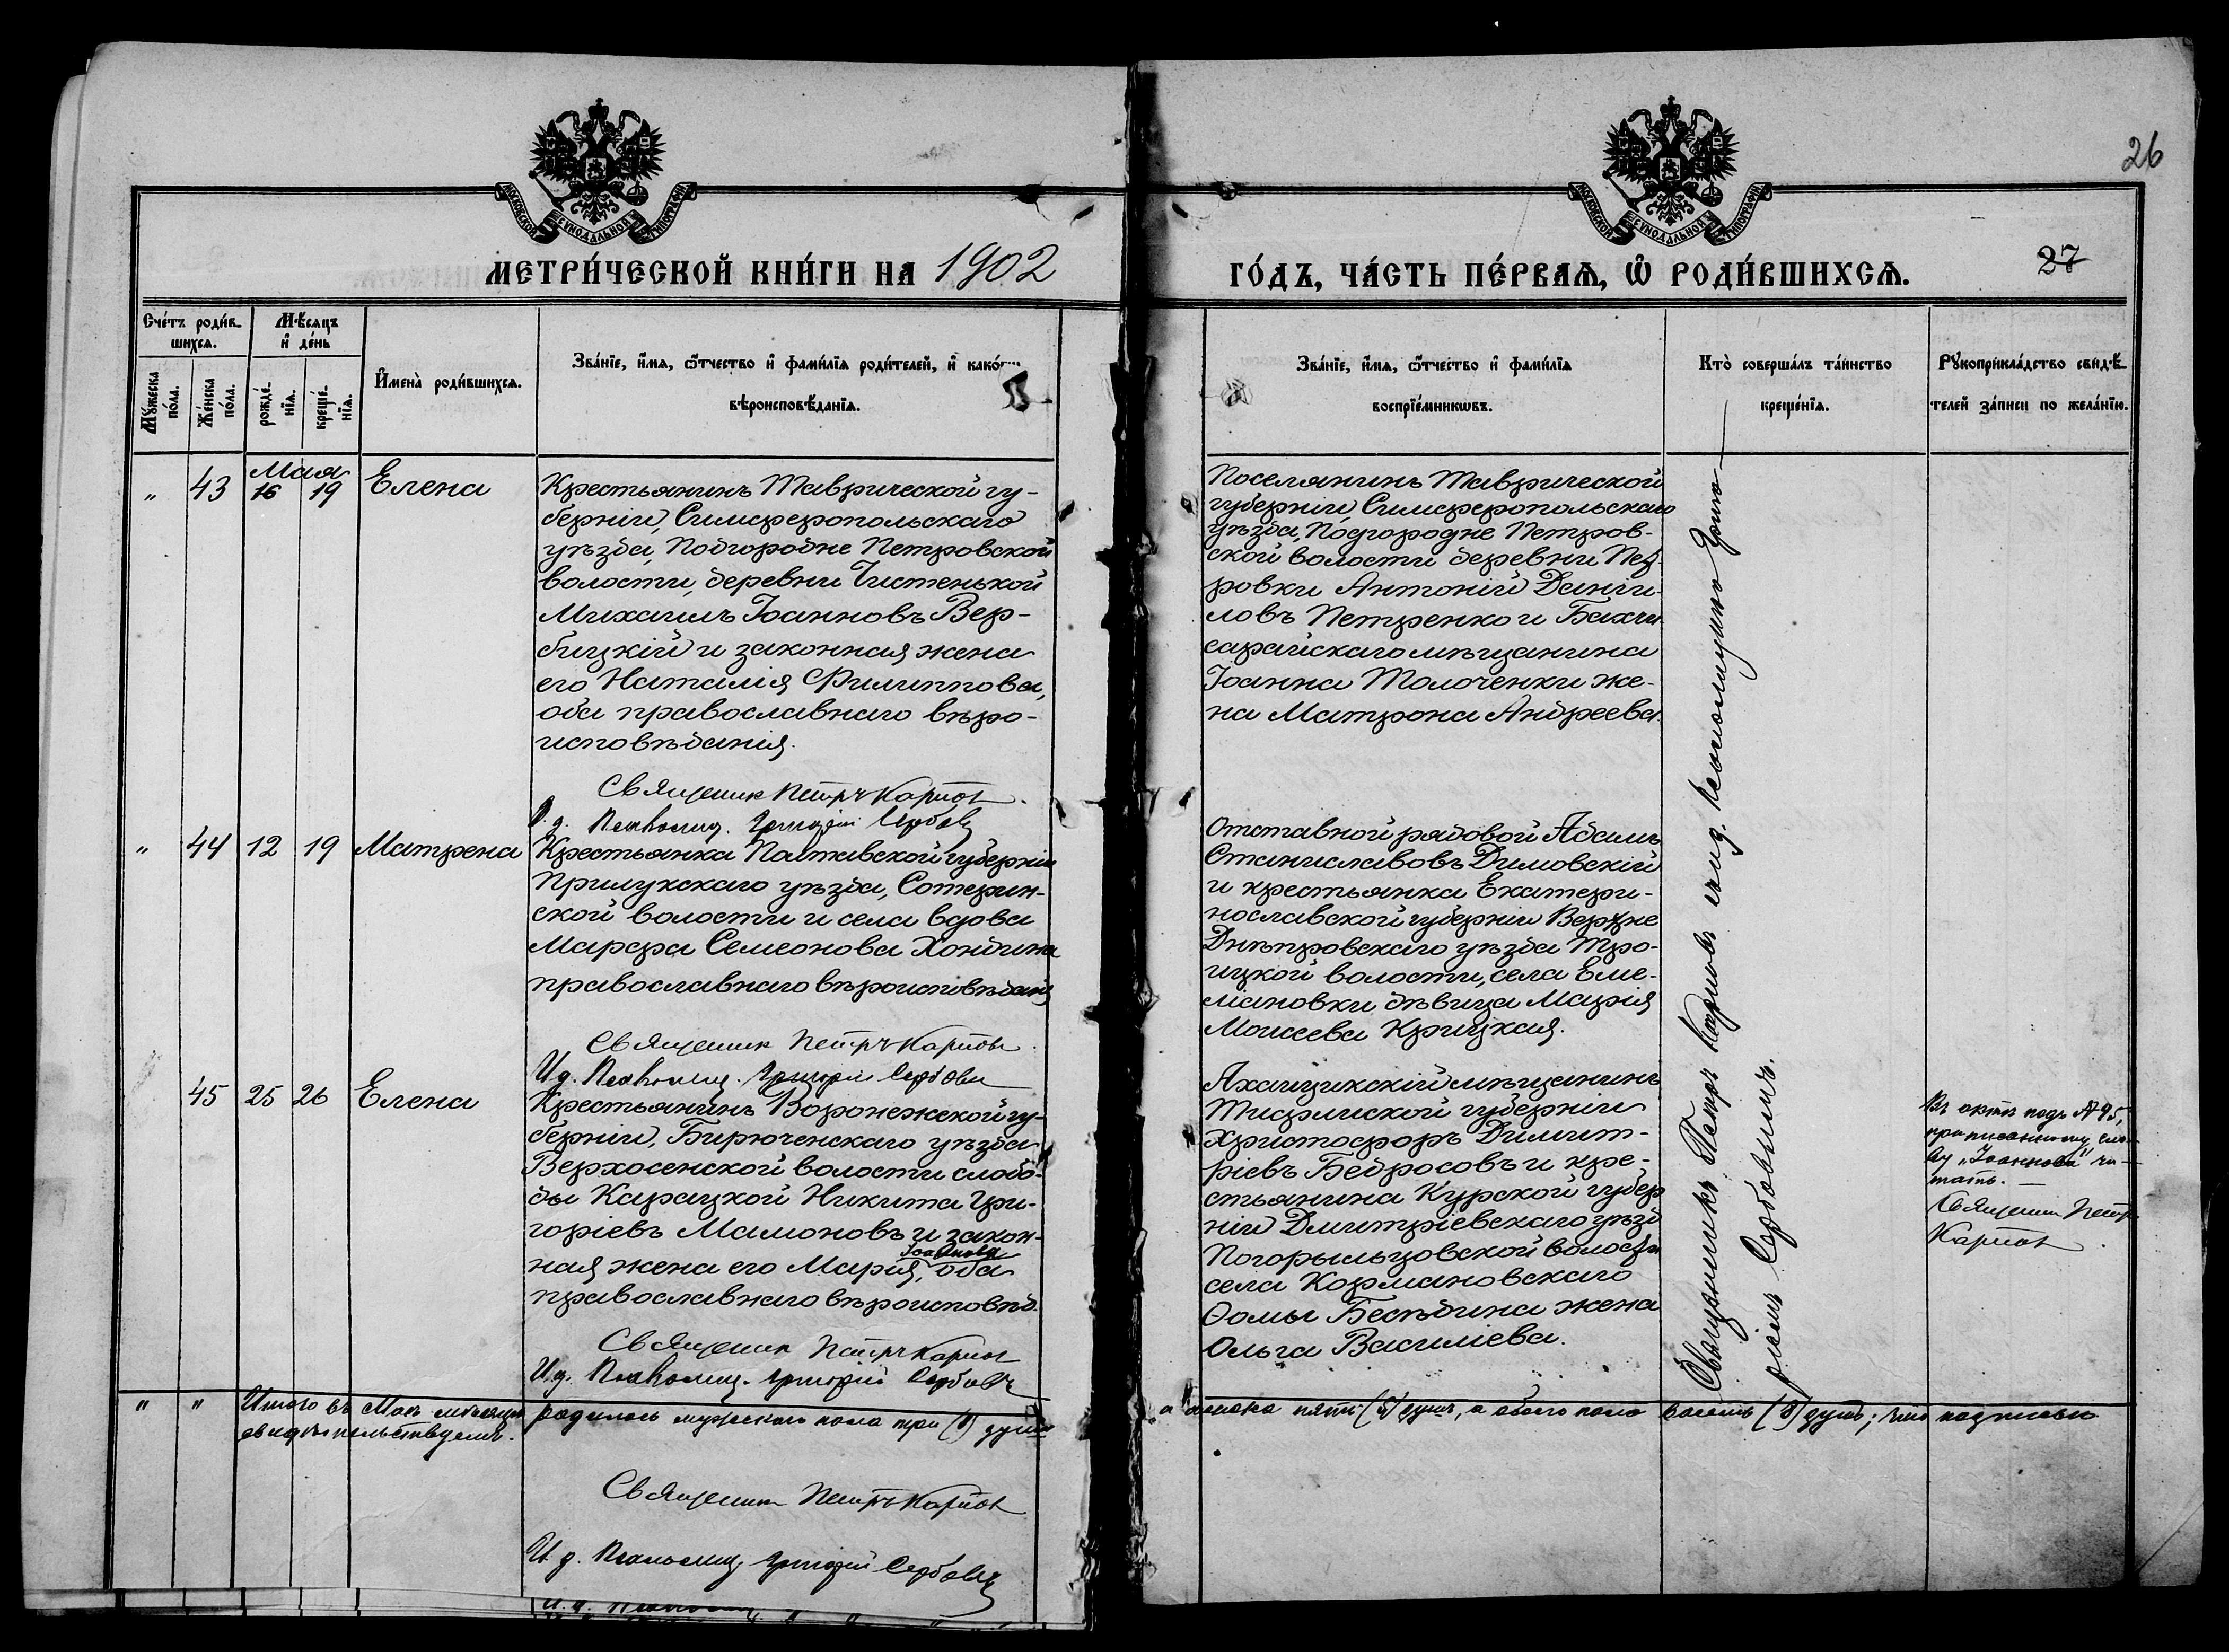 26
МОСКОВСКОЙ СУНОДАЛЬНОЙ ТИПОГРАФИИ
МОСКОВСКОЙ СУНОДАЛЬНОЙ ТИПОГРАФИИ
МЕТРИ́ЧЕСКОЙ КНИ́ГИ НА 1902
ГО́ДЪ, ЧА́СТЬ ПЕ́РВАѦ, Ѡ РОДИ́ВШИХСѦ.
27
Сче́тъ роди́в-
шихсѧ.
Мѣ́сѧцъ
и҆ де́нь
Мꙋ́жеска
по́ла.
Же́нска
по́ла.
рожде́-
нїѧ.
креще́-
нїѧ.
И҆мена̀ роди́вшихсѧ.
Зва́нїе, и҆́мѧ, ѻ҆́тчество и҆ фами́лїѧ роди́телей, и҆ како́гѡ
вѣроисповѣ́данїѧ.
Зва́нїе, и҆́мѧ, ѻ҆́тчество и҆ фами́лїѧ
воспрїе́мникѡвъ.
Кто̀ соверша́лъ та́инство
креще́нїѧ.
Рꙋкоприкла́дство свидѣ́-
телей за́писи по жела́нїю.
Мая
" 43 16 19 Елена
Крестьянинъ Таврической гу-
берніи, Симферопольскаго
уѣзда, Подгородне Петровской
волости, деревни Чистенькой
Михаилъ Іоанновъ Вер-
бицкій и законная жена
его Наталія Филиппова,
оба православнаго вѣро-
исповѣданія.
Священник Петръ Карпов
И. д. Псаломщ. Григорій Сербовъ
Поселянинъ Таврической
губерніи, Симферопольскаго
уѣзда, Подгородне Петров-
ской волости деревни Пет-
ровки Антоній Дании-
ловъ Петренко и Бахчи-
сарайскаго мѣщанина
Іоанна Толоченки же-
на Матрона Андреева.
" 44 12 19 Матрена
Крестьянка Полтавской губерніи
Прилукскаго уѣзда,
ской волости и села вдова
Марфа Семеонова
православнаго вѣроисповѣданія
Священник Петръ Карпов
И. д. Псаломщ. Григорій Сербовъ
Отставной рядовой Адамъ
Станиславовъ Димовскій
и крестьянка Екатери-
нославской губерніи Верхне
Днѣпровскаго уѣзда Тро-
ицкой волости, села Еме-
ліановки дѣвица Марія
Моисеева Крицкая.
45 25 26 Елена
Крестьянинъ Воронежской гу-
берніи, Бирюченскаго уѣзда
Верхосенской волости слобо-
ды Карацкой Никита Гри-
горіевъ Мамоновъ и закон-
Іоаннова
ная жена его Марія, оба
православнаго вѣроисповѣд.
Священник Петръ Карпов
И. д. Псаломщ. Григорій Сербовъ
Ахалцикскій мѣщанинъ
Тифлисской губерніи
Христофоръ Димит-
ріевъ Бедросовъ и кре-
стьянина Курской губер
ніи Дмитріевскаго уѣзд
Погорыльцовской волости
села Кормановскаго
Ѳомы Бесѣдина жена
Ольга Василіева.
Священникъ Петръ Карповъ съ и. д. псаломщика Григо-
ріемъ Сербовымъ.
Въ актѣ подъ № 45,
приписанному сло-
ву „Іоаннова" чи-
тать.
Священник Петръ
Карпов
" " Итого въ Маѣ мѣсяцѣ родилось мужескаго пола три (3) души
а женска пять (5) душъ, а обоего пола восемь (8) душъ; что подписью
свидѣтельствуемъ.
Священник Петръ Карпов
И. д. Псаломщ. Григорій Сербовъ